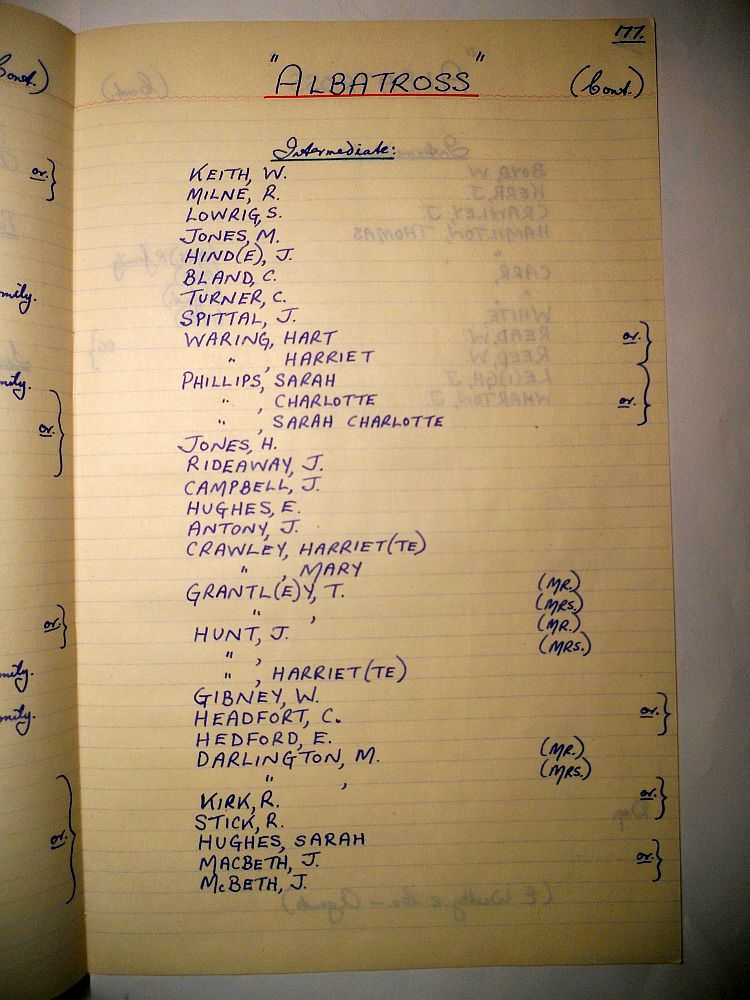 177.
"ALBATROSS" (Cont.)
Intermediate:
KEITH, W.
MILNE, R.
LOWRIG, S.
JONES, M.
HIND(E), J.
BLAND, C.
TURNER, C.
SPITTAL, J.
WARING, HART
" , HARRIET or.
PHILLIPS, SARAH
" , CHARLOTTE or.
" , SARAH CHARLOTTE
JONES, H.
RIDEAWAY, J.
CAMPBELL, J.
HUGHES, E.
ANTONY, J.
CRAWLEY, HARRIET(TE)
" , MARY
GRANTL(E)Y, T. (MR.)
" , (MRS.)
HUNT, J. (MR.)
" , (MRS.)
" , HARRIET(TE)
GIBNEY, W.
HEADFORT, C. or.
HEDFORD, E.
DARLINGTON, M. (MR.)
" , (MRS.)
KIRK, R. or.
STICK, R.
HUGHES, SARAH
MACBETH, J. or.
McBETH, J.